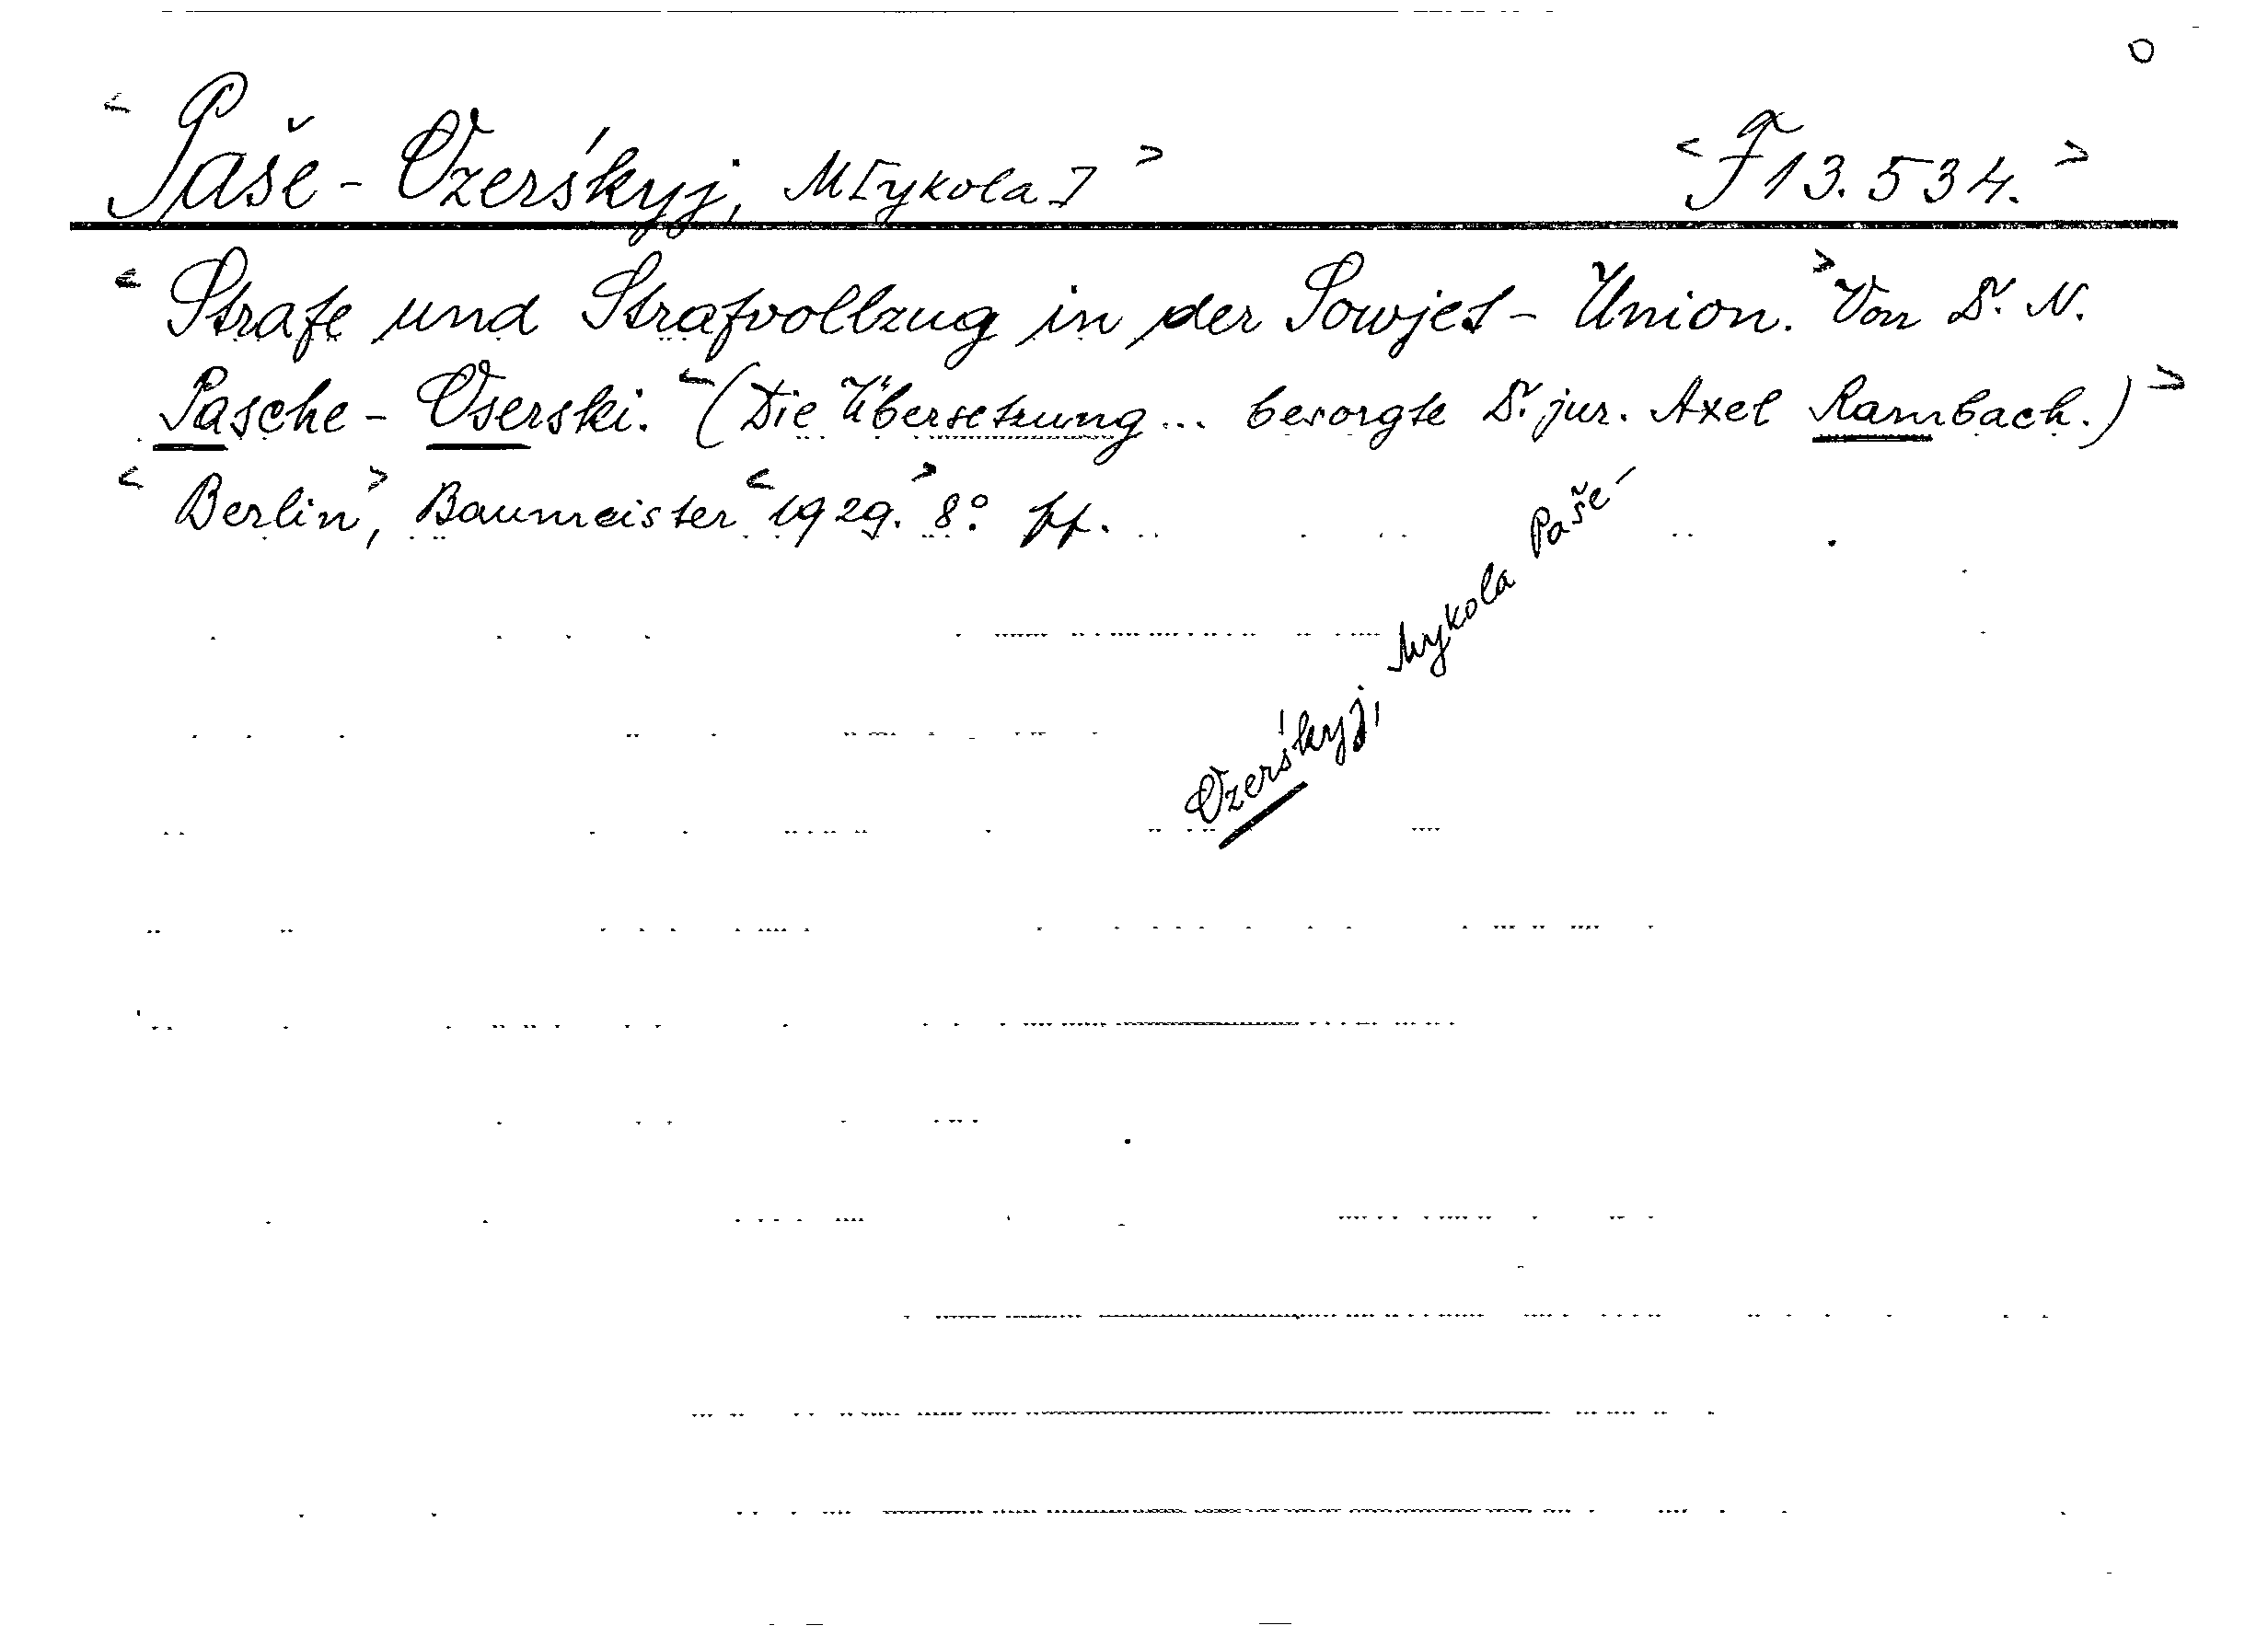 <Paše-Ozerśkyj, M[ykola]> <F 13.534.>
<Strafe und Strafvollzug in der Sowjet-Union.> Von Dr. N.
Pasche-Oserski. <(Die Übersetzung... besorgte Dr. jur. Axel Rambach.)>
<Berlin>, Baumeister <1929.> 8°.
Ozerśkyj, Mykola Paše-